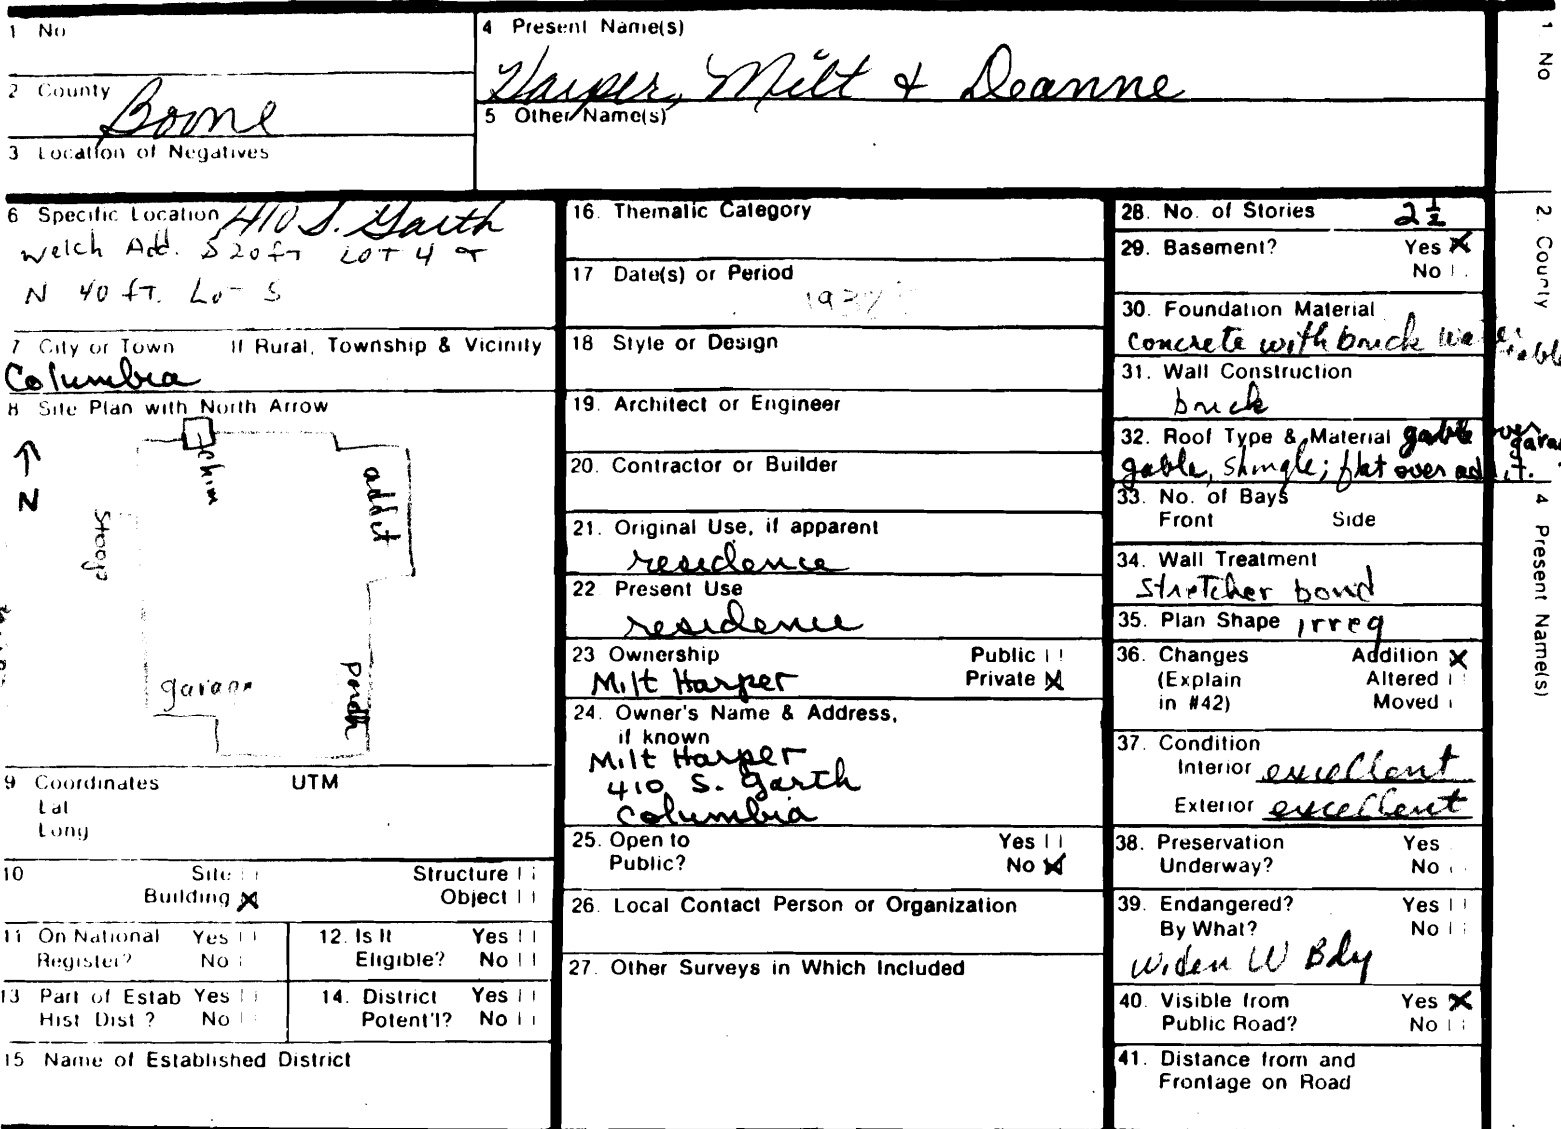 1 No
4 Present Name(s)
Harper, Milt & Deanne
2 County
Boone
5 Other Name(s)
3 Location of Negatives
6 Specific Location 410 S. Garth
Welch Add. S 20 ft LOT 4 &
N 40 ft. Lot 5
7 City or Town If Rural, Township & Vicinity
Columbia
8 Site Plan with North Arrow
N
chim
addit
Stoop
garage
porch
9 Coordinates UTM
Lat
Long
10 Site Structure
Building X Object
11 On National Register? Yes No
12. Is It Eligible? Yes No
13 Part of Estab Hist Dist? Yes No
14. District Potent'l? Yes No
15 Name of Established District
16. Thematic Category
17 Date(s) or Period
18 Style or Design
19. Architect or Engineer
20. Contractor or Builder
21. Original Use, if apparent
residence
22 Present Use
residence
23 Ownership Public
Milt Harper Private X
24. Owner's Name & Address,
if known
Milt Harper
410 S. Garth
Columbia
25. Open to Yes
Public? No X
26. Local Contact Person or Organization
27. Other Surveys in Which Included
28. No. of Stories 2 1/2
29. Basement? Yes X
No
30. Foundation Material
concrete with brick
31. Wall Construction
brick
32. Roof Type & Material gable over garage
gable, shingle; flat over addit.
33. No. of Bays
Front Side
34. Wall Treatment
Stretcher bond
35. Plan Shape irreg
36. Changes Addition X
(Explain Altered
in #42) Moved
37. Condition
Interior excellent
Exterior excellent
38. Preservation Yes
Underway? No
39. Endangered? Yes
By What? No
Widen W Bdy
40. Visible from Yes X
Public Road? No
41. Distance from and
Frontage on Road
1 No
2. County
4 Present Name(s)